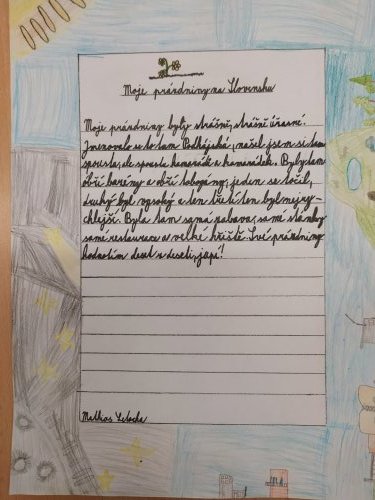 Moje prázdniny na Slovensku
Moje prázdniny byly strášně, strašně úžasné.
Jmenovalo se to tam Podhájska, našel jsem si tam
spousta, ale spousta kamarádů a kamarádek. Byly tam
obří bazény a obří tobogány, jeden se točil,
druhý byl vysoký a ten třetí ten byl nejry-
chlejší. Byla tam samá zábava, samé stánky
samé restaurace a velké hřiště. Své prázdniny
hodnotím deset z deseti, jupí!